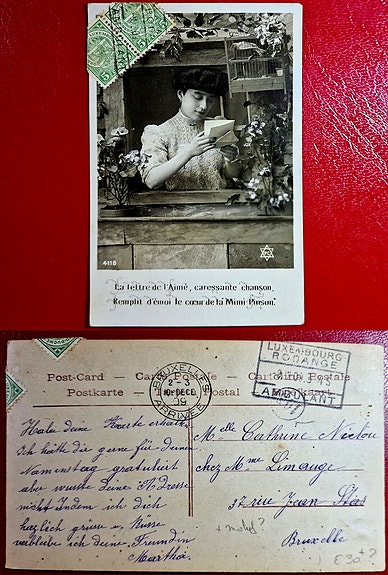 5
4118
La lettre de l'Aimé, caressante chanson,
Remplit d'émoi le cœur de la Mimi-Pinson.
Post-Card — Carte Postale — Cartolina Postale
Postkarte Postal
LUXEMBOURG
RODANGE
AMBULANT
BRUXELLES
2-3
10 DECE
09
ARRIVEE
Habe deine Karte erhalten
Ich hätte dir gerne für deinen
Namenstag gratuliert
aber wusste deine Adresse
nicht Indem ich dich
herzlich grüsse u. Küsse
verbleibe ich deine Freundin
Martha.
Melle Cathrine
chez Mme Limauge
37 rue Jean Stas
Bruxelle